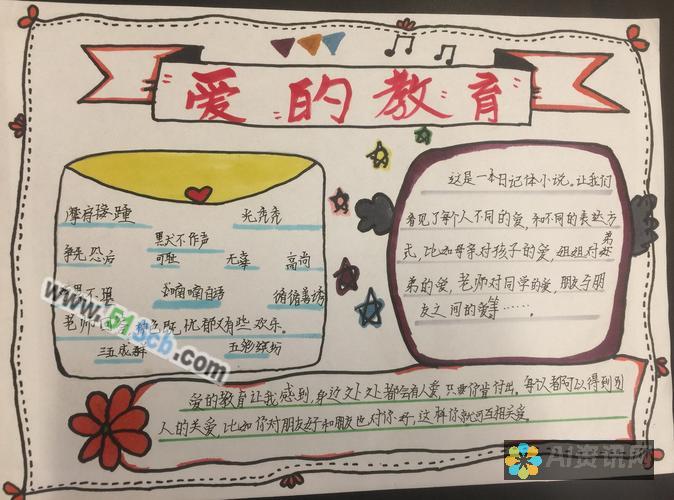 爱的教育
摩肩接踵 光秃秃
默不作声
争先恐后 可耻 无辜 高尚
喃喃自语 循循善诱
老师 色既忧郁又有些欢乐。
三五成群 五彩缤纷
这是一本日记体小说。让我们
看见了每个人不同的爱,和不同的表达方
式,比如母亲对孩子的爱,姐姐对弟
弟的爱,老师对同学的爱,朋友与朋
友之间的爱等……。
爱的教育让我感到,身边处处都会有人爱,只要你肯付出。每次都可以得到别
人的关爱,比如你对朋友好和朋友也对你好,这样你就可互相关爱.
www.51scb.com
AI资讯网